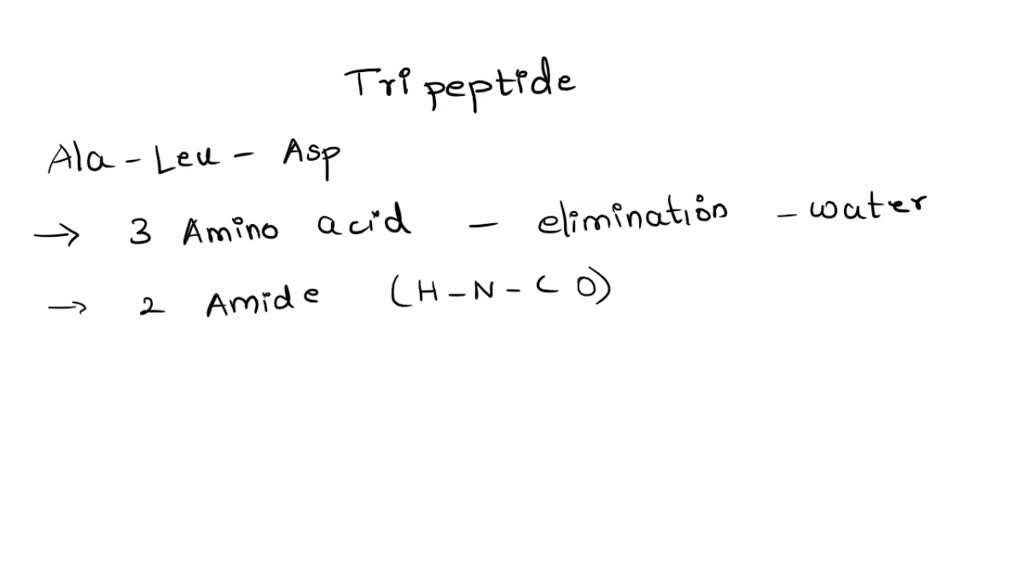 Tripeptide
Ala - Leu - Asp
→ 3 Amino acid - elimination - water
→ 2 Amide (H-N-CO)